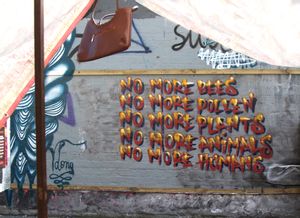 NO MORE BEES
NO MORE POLLEN
NO MORE PLANTS
NO MORE ANIMALS
NO MORE HUMANS